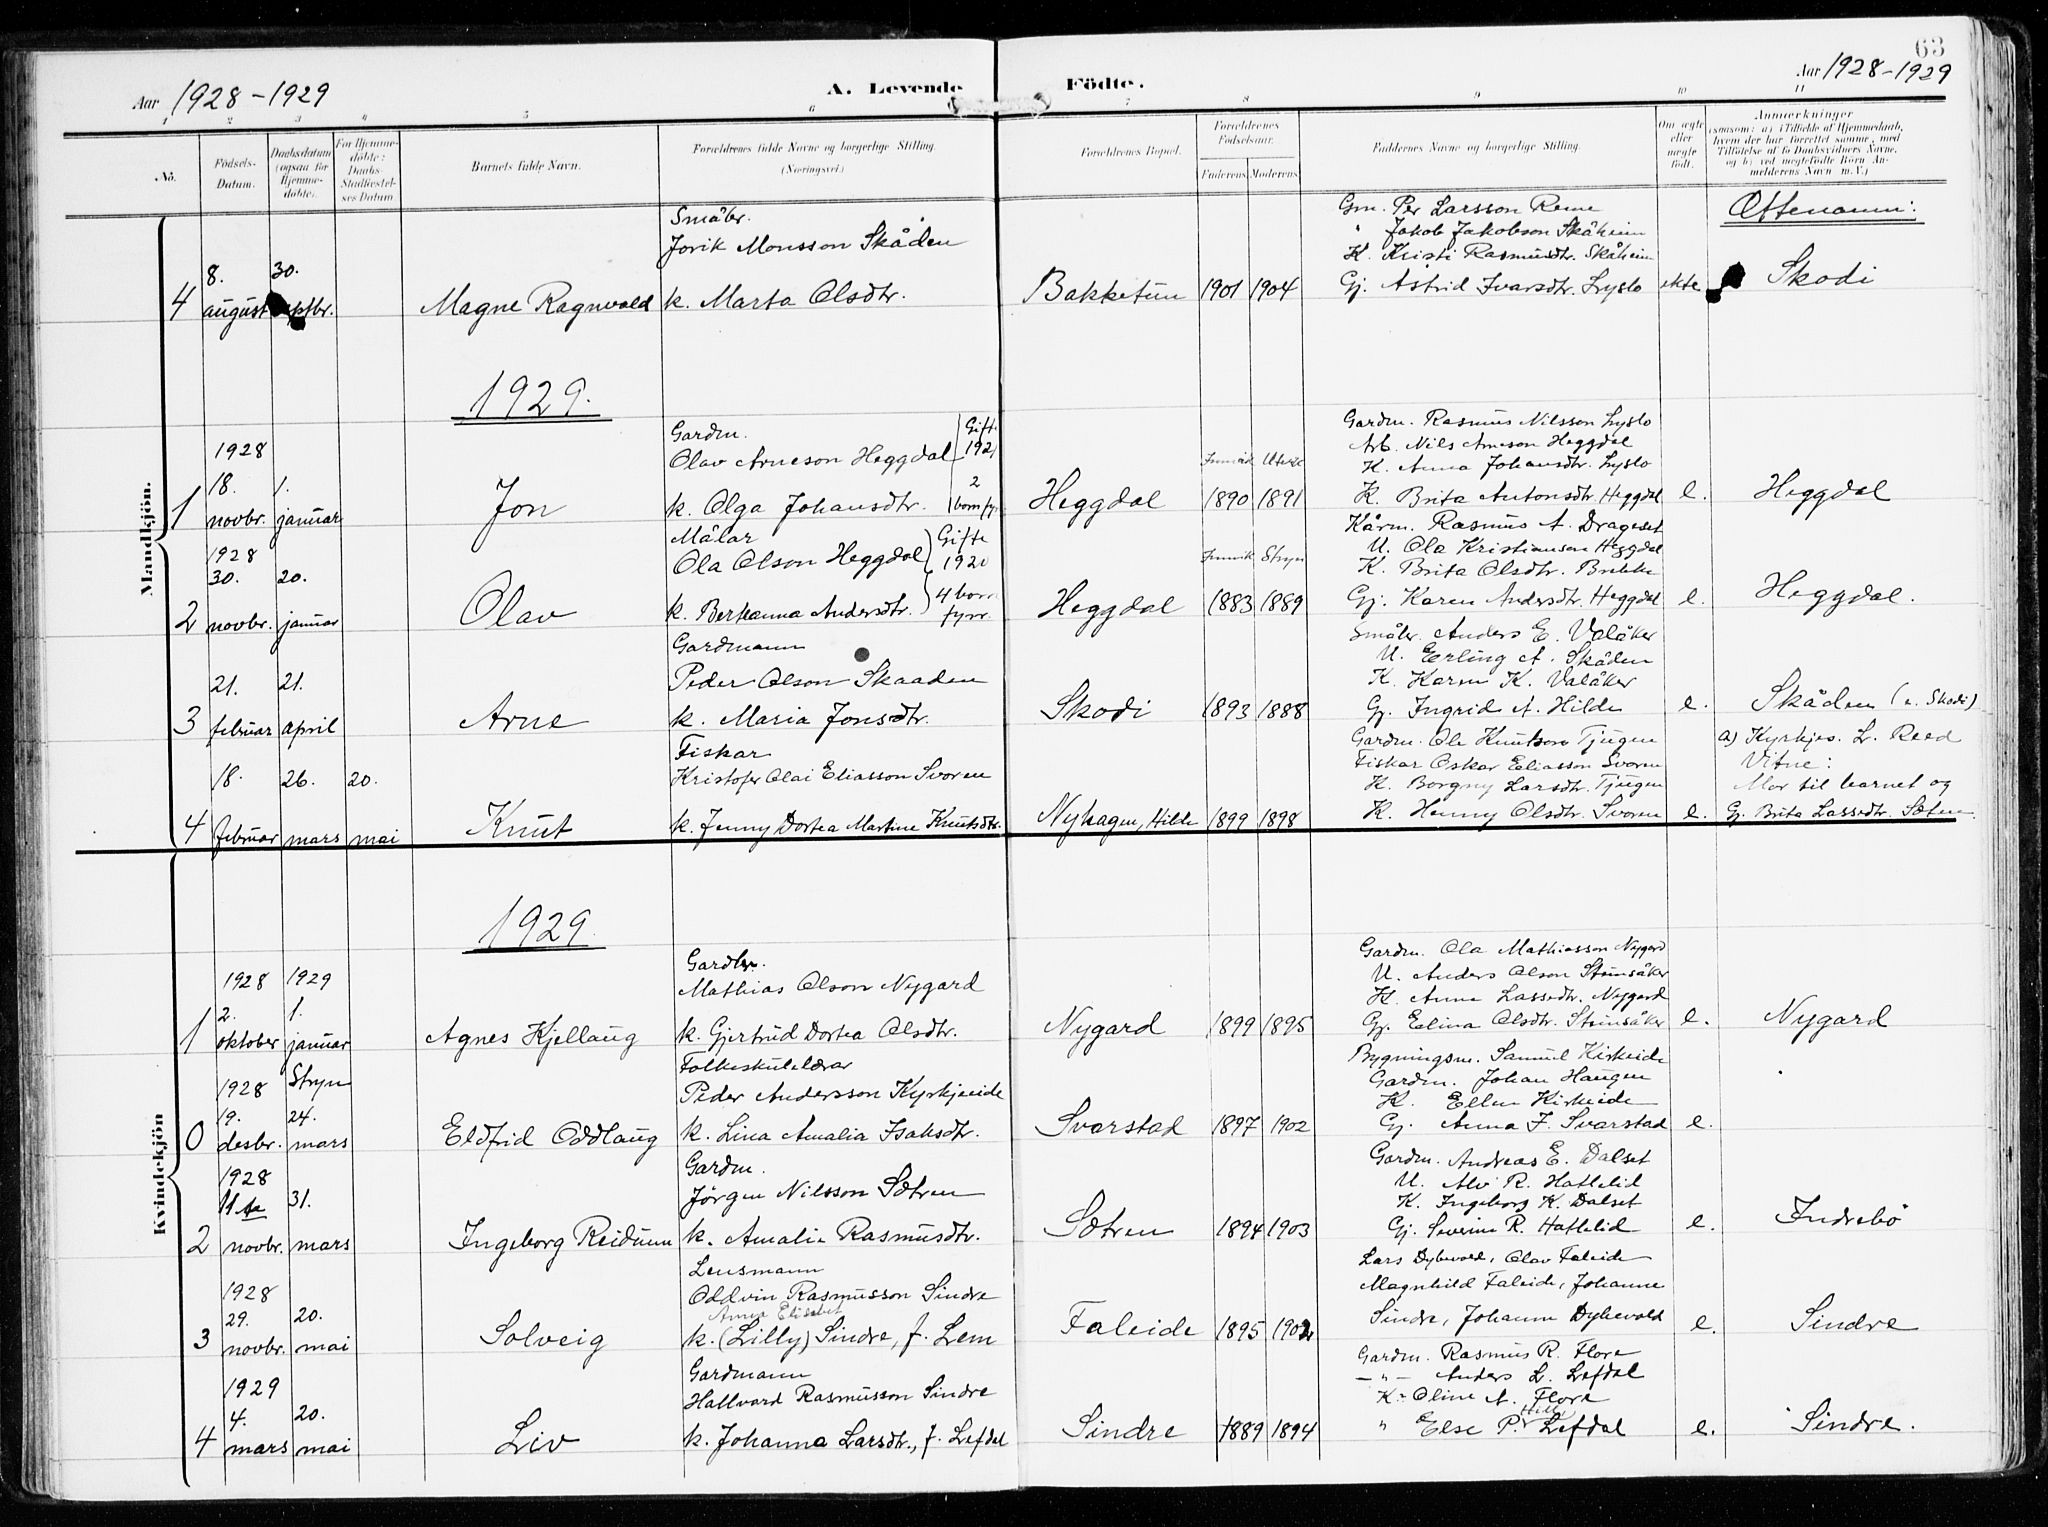 63
Aar 1928-1929
A. Levende Födte.
Aar 1928-1929
1 2 3 4 5 6 7 8 9 10 11
No.
Födsels-Datum.
Daabsdatum (ogsaa for Hjemmedöbte).
For Hjemmedöbte: Daabs-Stadfæstelses Datum
Barnets fulde Navn.
Forældrenes fulde Navne og borgerlige Stilling. (Næringsvei.)
Forældrenes Bopæl.
Forældrenes Födselsaar.
Faderens Moderens
Faddernes Navne og borgerlige Stilling.
Om ægte eller uægte födt.
Anmærkninger (saasom: a) i Tilfælde af Hjemmedaab, hvem der har forrettet samme, med Tilföielse af to Daabsvidners Navne, og b) ved uægtefödte Börn Anmelderens Navn m. V.)
Mandkjön.
Ættenamn:
4
8. august
30. septbr.
Magne Ragnvald
Småbr.
Jorik Monsson Skåden
k. Marta Olsdtr.
Bakketun
1901 1904
Gm. Per Larsson Reme
" Jakob Jakobson Skåheim
K. Kristi Rasmusdtr. Skåheim
Gj. Astrid Ivarsdtr. Lyslo
ekte
Skodi
1929.
1
1928
18. novbr.
1. januar
Jon
Gardm.
Olav Arneson Heggdal
k. Olga Johansdtr.
Gifte 192
2 born fyr
Heggdal
1890 1891
Gardm. Rasmus Nilsson Lyslo
Arb. Nils Arneson Heggdal
K. Anna Johansdtr. Lyslo
K. Brita Antonsdtr. Heggdal
e.
Heggdal
2
1928
30. novbr.
20. januar
Olav
Målar
Ola Olson Heggdal
k. Berteanna Andersdtr.
Gifte 1920
4 born fyrr.
Heggdal
Innvik Stryn
1883 1889
Kårm. Rasmus A. Drageset
U. Ola Kristianson Heggdal
K. Brita Olsdtr. Brekke
Gj. Karen Andersdtr. Heggdal
e.
Heggdal.
3
21. februar
21. april
Arne
Gardmann
Peder Olson Skaaden
k. Maria Jonsdtr.
Skodi
1893 1888
Småbr. Anders E. Valåker
U. Erling A. Skåden
K. Karen K. Valåker
Gj. Ingrid A. Hilde
e.
Skåden (e. Skodi)
4
18. februar
26. mars
20. mai
Knut
Fiskar
Kristofer Olai Eliasson Svoren
k. Jenny Dortea Martine Knutsdtr.
Nyhagen, Hilde
1899 1898
Gardm. Ole Knutson Tjugen
Fiskar Oskar Eliasson Svoren
K. Borgny Larsdtr. Tjugen
K. Henny Olsdtr. Svoren
e.
a) Kyrkjes. L. Reed
Vitne:
Mor til barnet og
Gj. Brita Lassedtr. Sætren.
Kvindekjön
1929.
1
1928
2. oktober
1929
1. januar
Agnes Kjellaug
Gardbr.
Mathias Olson Nygard
k. Gjertrud Dortea Olsdtr.
Nygard
1899 1895
Gardm. Ola Mathiasson Nygard
U. Anders Olson Steinsåker
K. Anna Lassedtr. Nygard
Gj. Elina Olsdtr. Steinsåker
e.
Nygard
0
1928
19. desbr.
Stryn
24. mars
Eldfrid Oddlaug
Folkeskulelærar
Peder Andersson Kyrkjeeide
k. Lina Amalia Isaksdtr.
Svarstad
1897 1902
Bygningsm. Samuel Kirkeide
Gardm. Johan Haugen
K. Ellen Kirkeide
Gj. Anna F. Svarstad
e.
2
1928
11te novbr.
31. mars
Ingeborg Reidunn
Gardm.
Jörgen Nilsson Sætren
k. Amalie Rasmusdtr.
Sætren
1894 1903
Gardm. Andreas E. Dalset
U. Alv R. Haflelid
K. Ingeborg K. Dalset
Gj. Severine R. Haflelid
e.
Indrebö
3
1928
29. novbr.
20. mai
Solveig
Lensmann
Oddvin Rasmusson Sindre
Anna Elisabet
k. (Lilly) Sindre, f. Lem
Faleide
1895 1902
Lars Dybevold, Olav Faleide
Magnhild Faleide, Johanne
Sindre, Johanne Dybevold
e.
Sindre
4
1929
4. mars
20. mai
Liv
Gardmann
Hallvard Rasmusson Sindre
k. Johanna Larsdtr., f. Lefdal
Sindre
1889 1894
Gardm. Rasmus R. Flore
— " — Anders L. Lefdal
K. Oline A. Flore
Hilde
" Else P. Lefdal
e.
Sindre.